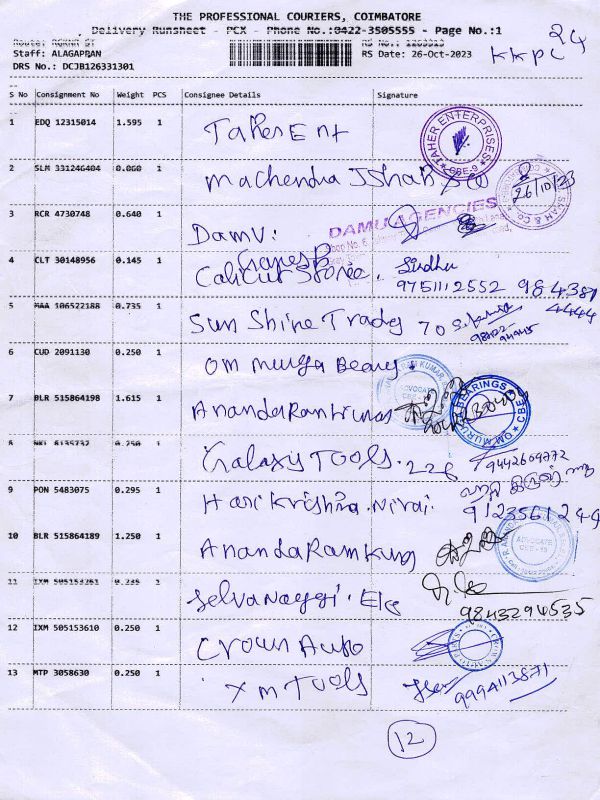 THE PROFESSIONAL COURIERS, COIMBATORE
Delivery Runsheet - PCX - Phone No.:0422-3505555 - Page No.:1
Staff: ALAGAPPAN
RS Date: 26-Oct-2023
DRS No.: DCJB126331301
KKPC 24
S No Consignment No Weight PCS Consignee Details Signature
1 EDQ 12315014 1.595 1 Taher Ent
TAHER ENTERPRISES CBE-9
2 SLM 331246404 0.060 1 Machendra J Shah & Co
26/10/23
3 RCR 4730748 0.640 1 Damu:
DAMU AGENCIES
4 CLT 30148956 0.145 1 Ganesh
Calicut Stone. Sindhu
9751112552 984381
4444
5 MAA 106522188 0.735 1 Sun Shine Tradg 70
6 CUD 2091130 0.250 1 Om Muruga Bearg.
OM MURUGA BEARINGS CBE
ADVOCATE
7 BLR 515864198 1.615 1 AnandaRamkumar
8 0.250 1 Galaxy Tools. 226
9442609772
9 PON 5483075 0.295 1 Hari Krishna. Nivai.
9123561244
10 BLR 515864189 1.250 1 AnandaRamkumg
ADVOCATE
11 IXM 505153261 0.235 1 Selvanayagi. Ele
9843294535
12 IXM 505153610 0.250 1 Crown Auto
13 MTP 3058630 0.250 1 XM Tools
9994113871
12